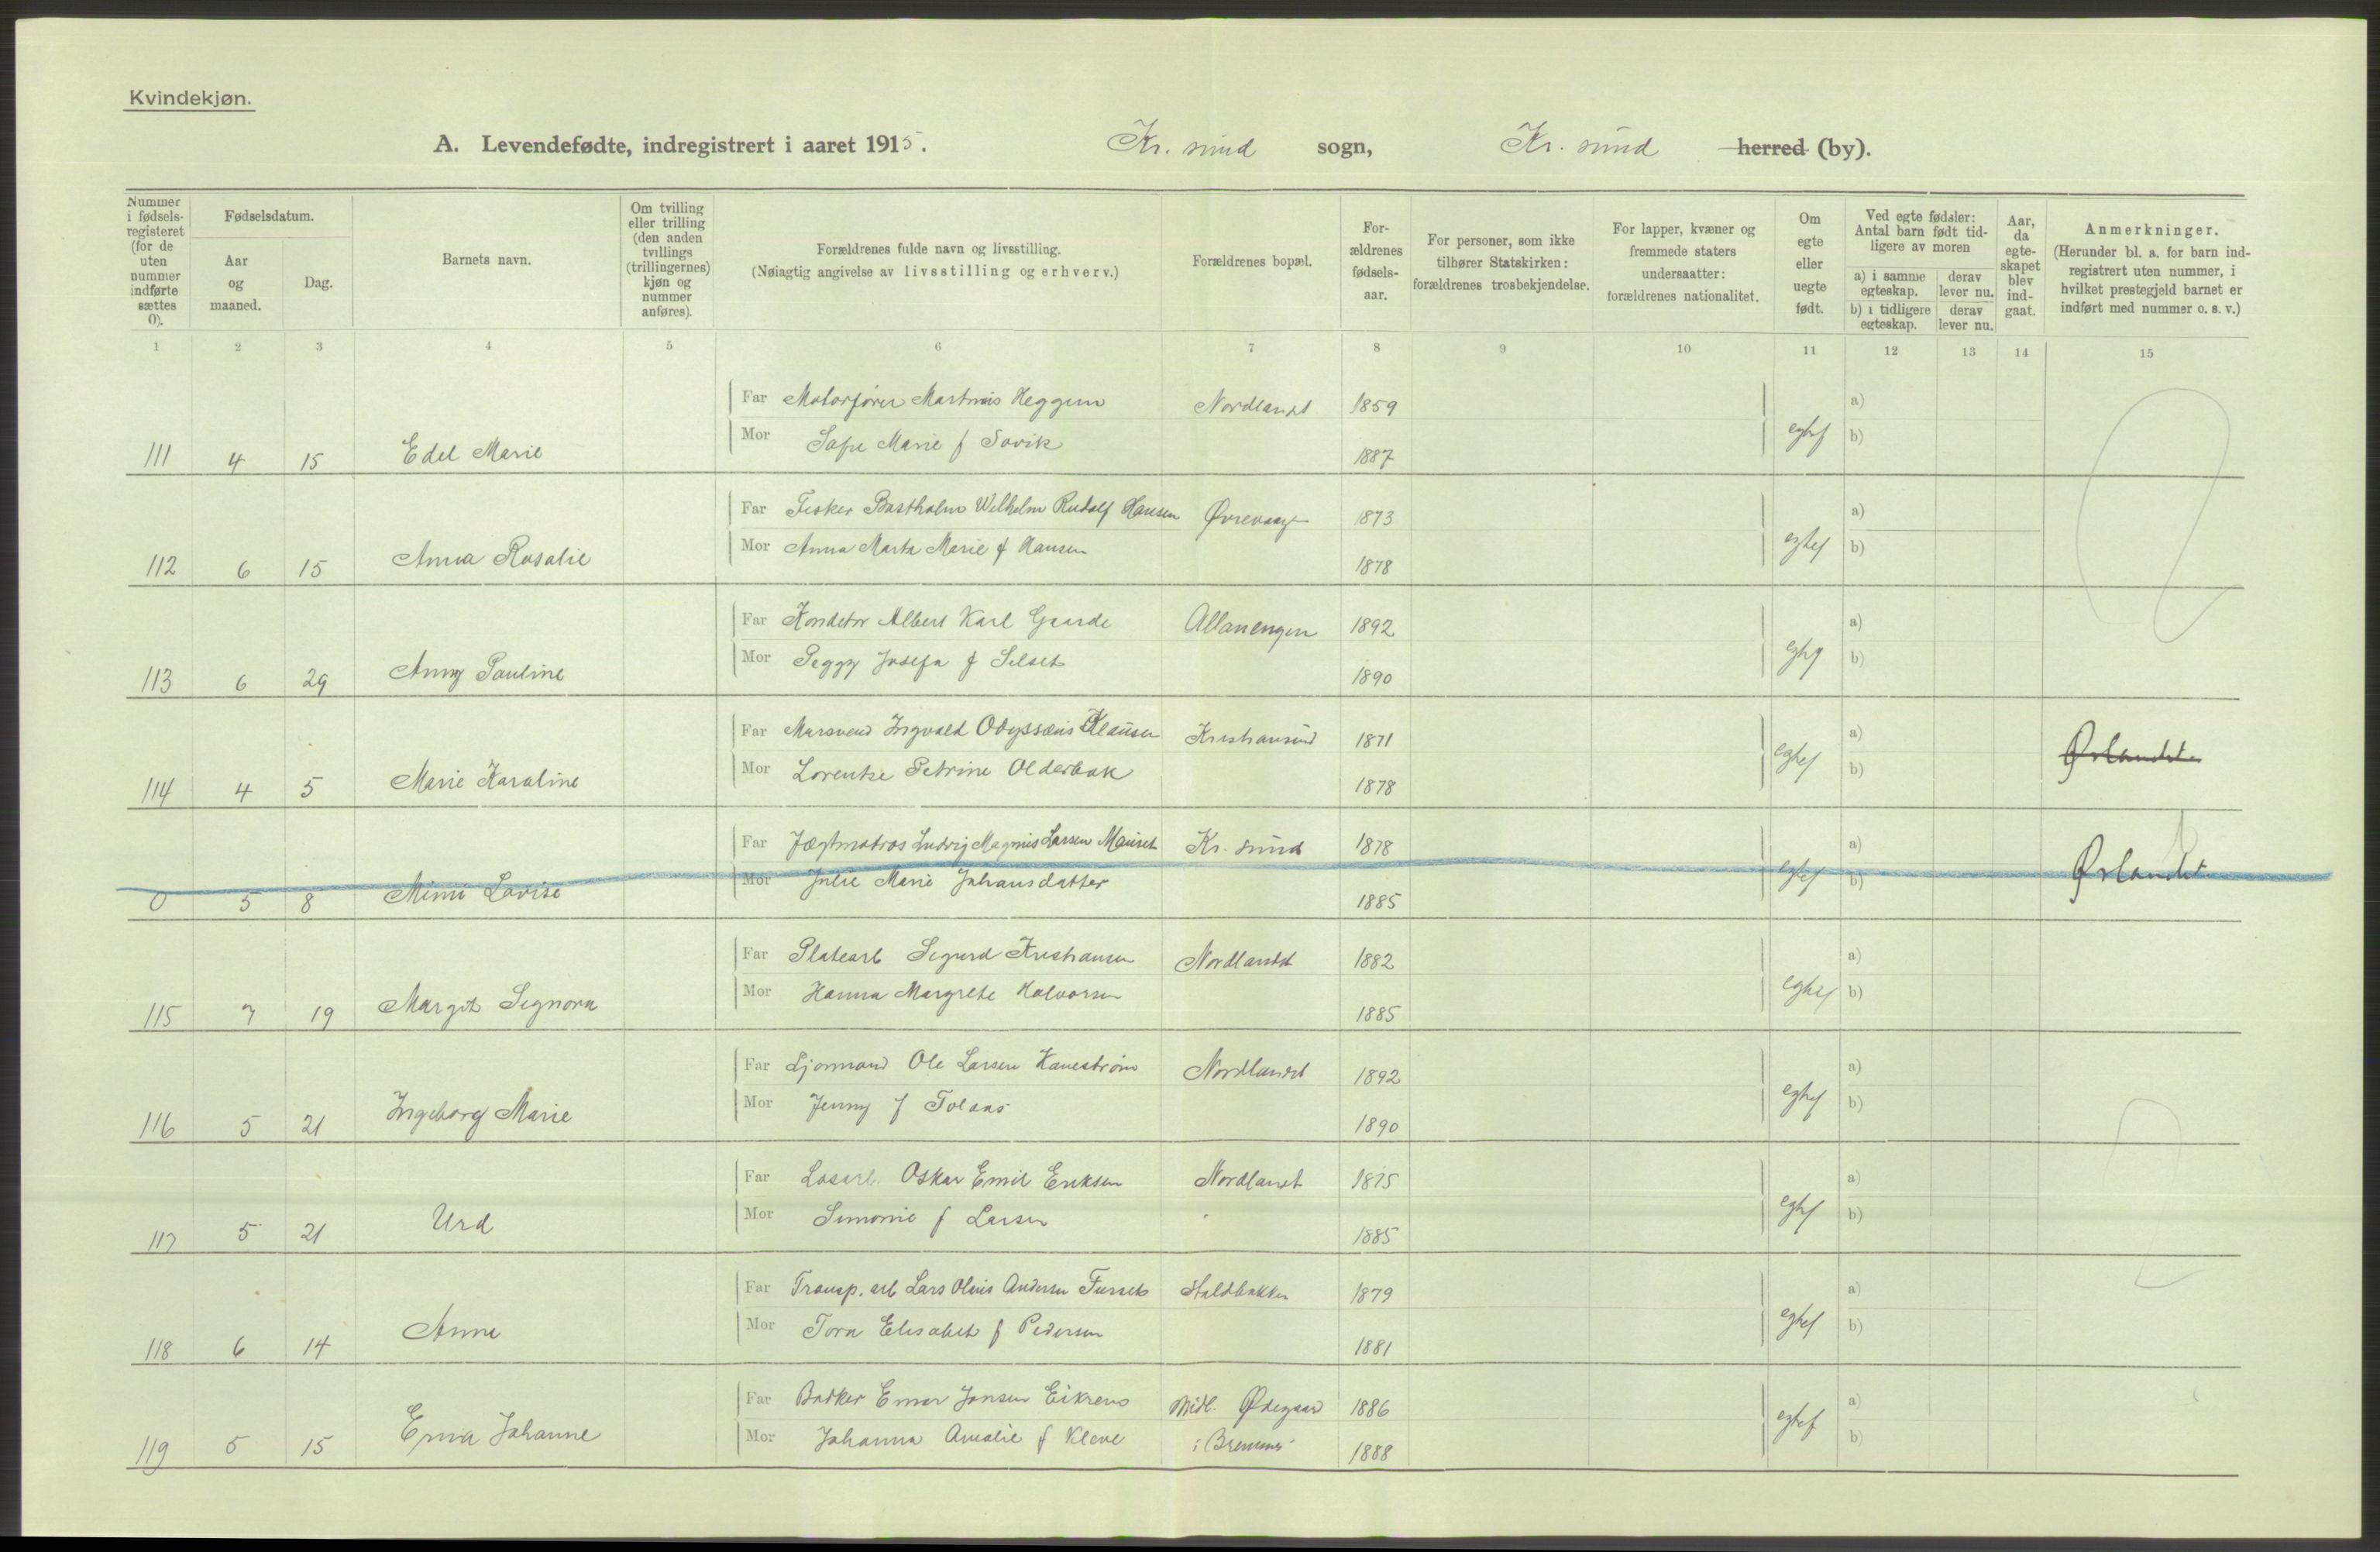 Kvindekjøn.
A. Levendefødte, indregistrert i aaret 1915. Kr. sund sogn, Kr. sund herred (by).
Nummer i fødsels-registeret (for de uten nummer indførte sættes 0).
Fødselsdatum.
Aar og maaned.
Dag.
Barnets navn.
Om tvilling eller trilling (den anden tvillings (trillingernes) kjøn og nummer anføres).
Forældrenes fulde navn og livsstilling.
(Nøiagtig angivelse av livsstilling og erhverv.)
Forældrenes bopæl.
For-ældrenes fødsels-aar.
For personer, som ikke tilhører Statskirken: forældrenes trosbekjendelse.
For lapper, kvæner og fremmede staters undersaatter: forældrenes nationalitet.
Om egte eller uegte født.
Ved egte fødsler: Antal barn født tid-ligere av moren
a) i samme egteskap.
derav lever nu.
b) i tidligere egteskap.
derav lever nu.
Aar, da egte-skapet blev ind-gaat.
Anmerkninger.
(Herunder bl. a. for barn ind-registrert uten nummer, i hvilket prestegjeld barnet er indført med nummer o. s. v.)
1 2 3 4 5 6 7 8 9 10 11 12 13 14 15
Far Motorfører Martinus Heggem Nordlandet 1859 a)
111 4 15 Edel Marie Mor Marie f Søvik 1887 b)
Far Fisker Bastholm Wilhelm Rudolf Hansen 1873 a)
112 6 15 Anna Rosalie Mor Anna Marta Marie f Hansen 1878 b)
Far Albert Karl Gaarde Allanengen 1892 a)
113 6 29 Anny Pauline Mor Peggy Josefa f Selset 1890 b)
Far Mursvend Ingvald Odyssæus Klausen Kristiansund 1871 a) Ørlandet
114 4 5 Marie Karoline Mor Lorentse Petrine Olderbak 1878 b)
Far Jægtmatros Ludvig Magnus Larsen Mauset Kr. sund 1878 a) Ørlandet
0 5 8 Mimi Lovise Mor Julie Marie Johansdatter 1885 b)
Far Platearb Sigurd Kristiansen Nordlandet 1882 a)
115 7 19 Margit Signora Mor Hanna Margrete Halvorsen 1885 b)
Far Ole Larsen Kanestrøm Nordlandet 1892 a)
116 5 21 Ingeborg Marie Mor Jenny f Tolaas 1890 b)
Far Løsarb. Oskar Emil Eriksen Nordlandet 1875 a)
117 5 21 Urd Mor f Larsen 1885 b)
Far Transp. arb Lars Olaus Andersen Furset Staldbakken 1879 a)
118 6 14 Anne Mor Tora Elisabet f Pedersen 1881 b)
Far Einar Jonsen Eikrem Midl. Ødegaard 1886 a)
119 5 15 Erna Johanne Mor Johanna Amalie f Kleve i Bremsnes 1888 b)